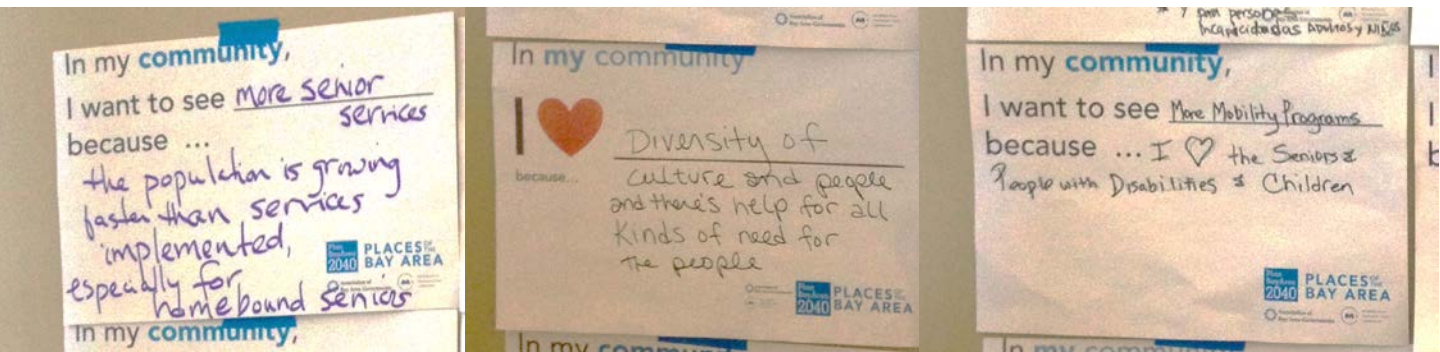 In my community,
I want to see more senior
services
because ...
the population is growing
faster than services
implemented,
especially for
homebound seniors
Plan
BayArea
2040
PLACES OF THE
BAY AREA
In my community,
In my community
I
Diversity of
because...
culture and people
and there's help for all
kinds of need for
the people
Plan
BayArea
2040
PLACES OF THE
BAY AREA
In my community
Association of
Bay Area Governments
* y para personas
incapacidadas Adultos y Niños
In my community,
I want to see More Mobility Programs
because ... I ♡ the Seniors &
People with Disabilities & Children
Plan
BayArea
2040
PLACES OF THE
BAY AREA
Association of
Bay Area Governments
In my community